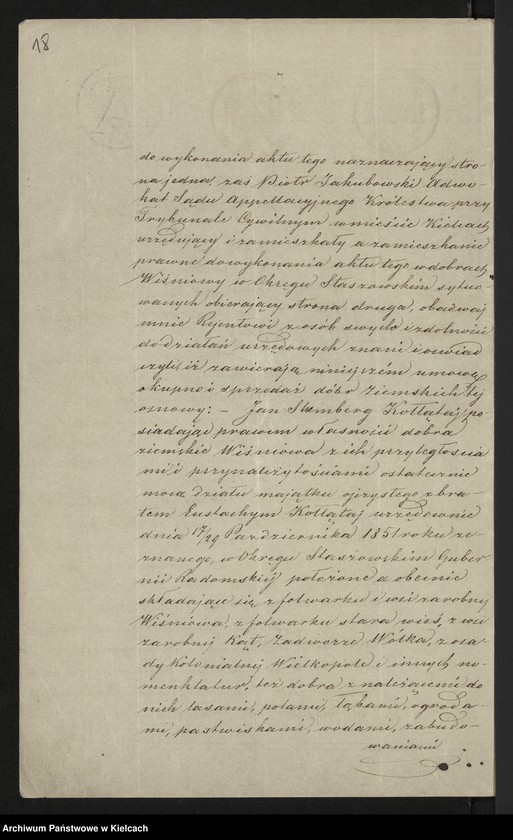 18
do wykonania aktu tego naznaczający stro-
na jedna, zaś Piotr Jakubowski Adwo-
kat Sądu Appellacyjnego Królestwa przy
Trybunale Cywilnym w mieście Kielcach
urzędujący i zamieszkały a zamieszkanie
prawne do wykonania aktu tego w dobrach
Wiśniowy w Okręgu Staszowskim sytuo-
wanych obierający strona druga, obadwaj
mnie Rejentowi z osób swych i zdolności
do działań urzędowych znani i oświad
czyli, iż zawierają niniejszém umowę
o kupno i sprzedaż dóbr Ziemskich tej
osnowy: – Jan Sztemberg Kołłątaj, po-
siadając prawem własności dobra
ziemskie Wiśniowa z ich przyległościa
mi i przynależytościami ostatecznie
mocą działu majątku ojczystego z bra-
tem Eustachym Kołłątaj urzędownie
dnia 17/29 Października 1851 roku ze-
znanego, w Okręgu Staszowskim Guber-
nii Radomskiéj położone a obecnie
składające się z folwarku i wsi zarobnéj
Wiśniowa, z folwarku stara wieś, z wsi
zarobnéj Kąt, Zadworze Wólka, z osa-
dy Kolonialnéj Wielkopole i innych no-
menklatur, też dobra z należącemi do
nich lasami, polami, łąkami, ogroda-
mi, pastwiskami, wodami, zabudo-
waniami
Archiwum Państwowe w Kielcach